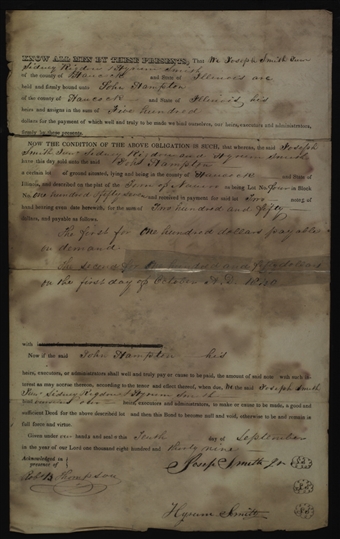 KNOW ALL MEN BY THESE PRESENTS, That We Joseph Smith Junr
Sidney Rigdon & Hyrum Smith
of the county of Hancock and State of Illinois are
held and firmly bound unto John Hampton
of the county of Hancock and State of Illinois, his
heirs and assigns in the sum of Five hundred
dollars for the payment of which well and truly to be made we bind ourselves, our heirs, executors and administrators,
firmly by these presents.
NOW THE CONDITION OF THE ABOVE OBLIGATION IS SUCH, that whereas, the said Joseph
Smith Junr Sidney Rigdon and Hyrum Smith
have this day sold unto the said John Hampton
a certain lot of ground situated, lying and being in the county of Hancock and State of
Illinois, and described on the plat of the Town of Nauvoo as being Lot No. four in Block
No. one hundred fifty and received in payment for said lot Two notes of
hand bearing even date herewith, for the sum of Two hundred and fifty
dollars, and payable as follows.
The first for one hundred dollars payable
on demand
The second for one hundred and fifty dollars
on the first day of October A.D. 1840
with
Now if the said John Hampton his
heirs, executors, or administrators shall well and truly pay or cause to be paid, the amount of said note with such in-
terest as may accrue thereon, according to the tenor and effect thereof, when due, the said Joseph Smith
Junr Sidney Rigdon & Hyrum Smith
heirs, executors and administrators, to make or cause to be made, a good and
sufficient Deed for the above described lot and then this Bond to become null and void, otherwise to be and remain in
full force and virtue.
Given under our hands and seals this Tenth day of September
in the year of our Lord one thousand eight hundred and thirty nine
Acknowledged in
presence of
Joseph Smith Jr
Robt B Thompson
Hyrum Smith